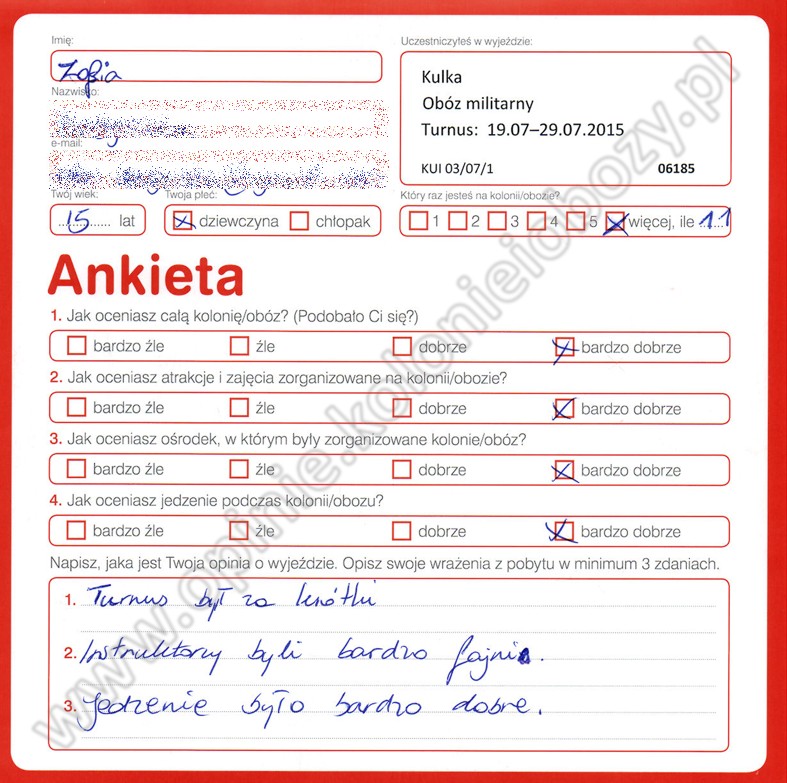 Imię:
Uczestniczyłeś w wyjeździe:
Zofia
Kulka
Nazwisko:
Obóz militarny
Turnus: 19.07–29.07.2015
e-mail:
KUI 03/07/1 06185
Twój wiek: Twoja płeć: Który raz jesteś na kolonii/obozie?
15 lat dziewczyna chłopak 1 2 3 4 5 więcej, ile 11
Ankieta
1. Jak oceniasz całą kolonię/obóz? (Podobało Ci się?)
bardzo źle źle dobrze bardzo dobrze
2. Jak oceniasz atrakcje i zajęcia zorganizowane na kolonii/obozie?
bardzo źle źle dobrze bardzo dobrze
3. Jak oceniasz ośrodek, w którym były zorganizowane kolonie/obóz?
bardzo źle źle dobrze bardzo dobrze
4. Jak oceniasz jedzenie podczas kolonii/obozu?
bardzo źle źle dobrze bardzo dobrze
Napisz, jaka jest Twoja opinia o wyjeździe. Opisz swoje wrażenia z pobytu w minimum 3 zdaniach.
1. Turnus był za krótki
2. Instruktorzy byli bardzo fajni.
3. Jedzenie było bardzo dobre.
www.opinie.kolonieiobozy.pl